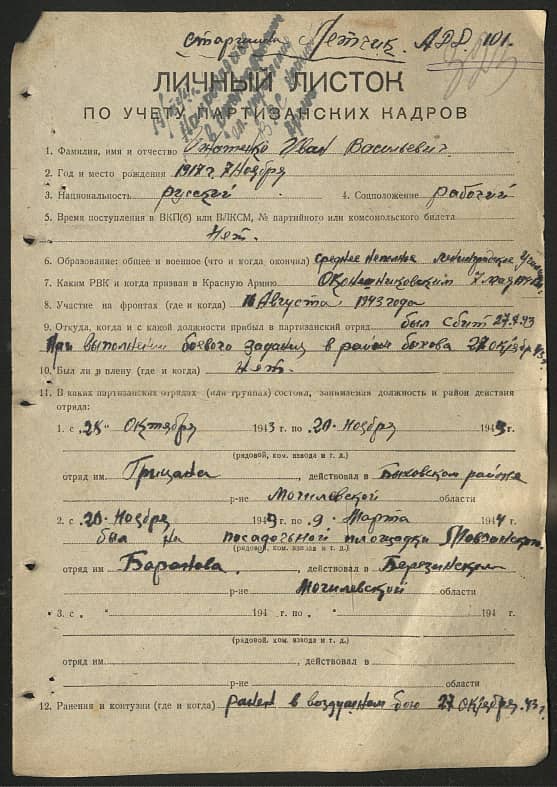 старшина Летчик. АДД. 101.
ЛИЧНЫЙ ЛИСТОК
ПО УЧЕТУ ПАРТИЗАНСКИХ КАДРОВ
1. Фамилия, имя и отчество Иван Васильевич
2. Год и место рождения 1917 г. 7 Ноября
3. Национальность русский 4. Соцположение рабочий
5. Время поступления в ВКП(б) или ВЛКСМ, № партийного или комсомольского билета
Нет.
6. Образование: общее и военное (что и когда окончил) среднее неполное
7. Каким РВК и когда призван в Красную Армию
8. Участие на фронтах (где и когда) Августа 1943 года
9. Откуда, когда и с какой должности прибыл в партизанский отряд был сбит
При выполнении боевого задания в район быхова 27 октября 43 г.
10. Был ли в плену (где и когда) нет.
11. В каких партизанских отрядах (или группах) состоял, занимаемая должность и район действия
отряда:
1. с „28“ Октября 1943 г. по 20 Ноября 1943 г.
(рядовой, ком. взвода и т. д.)
отряд им Гришана, действовал в Быховском районе
р-не Могилевской области
2. с „20“ Ноября 1943 г. по „9“ Марта 1944 г.
был на посадочной площадки
(рядовой, ком. взвода и т. д.)
отряд им Баранова, действовал в Березинском
р-не Могилевской области
3. с „ “ 194 г. по „ “ 194 г.
(рядовой, ком. взвода и т. д.)
отряд им , действовал в
р-не области
12. Ранения и контузии (где и когда) ранен в воздушном бою 27 октября 43 г.